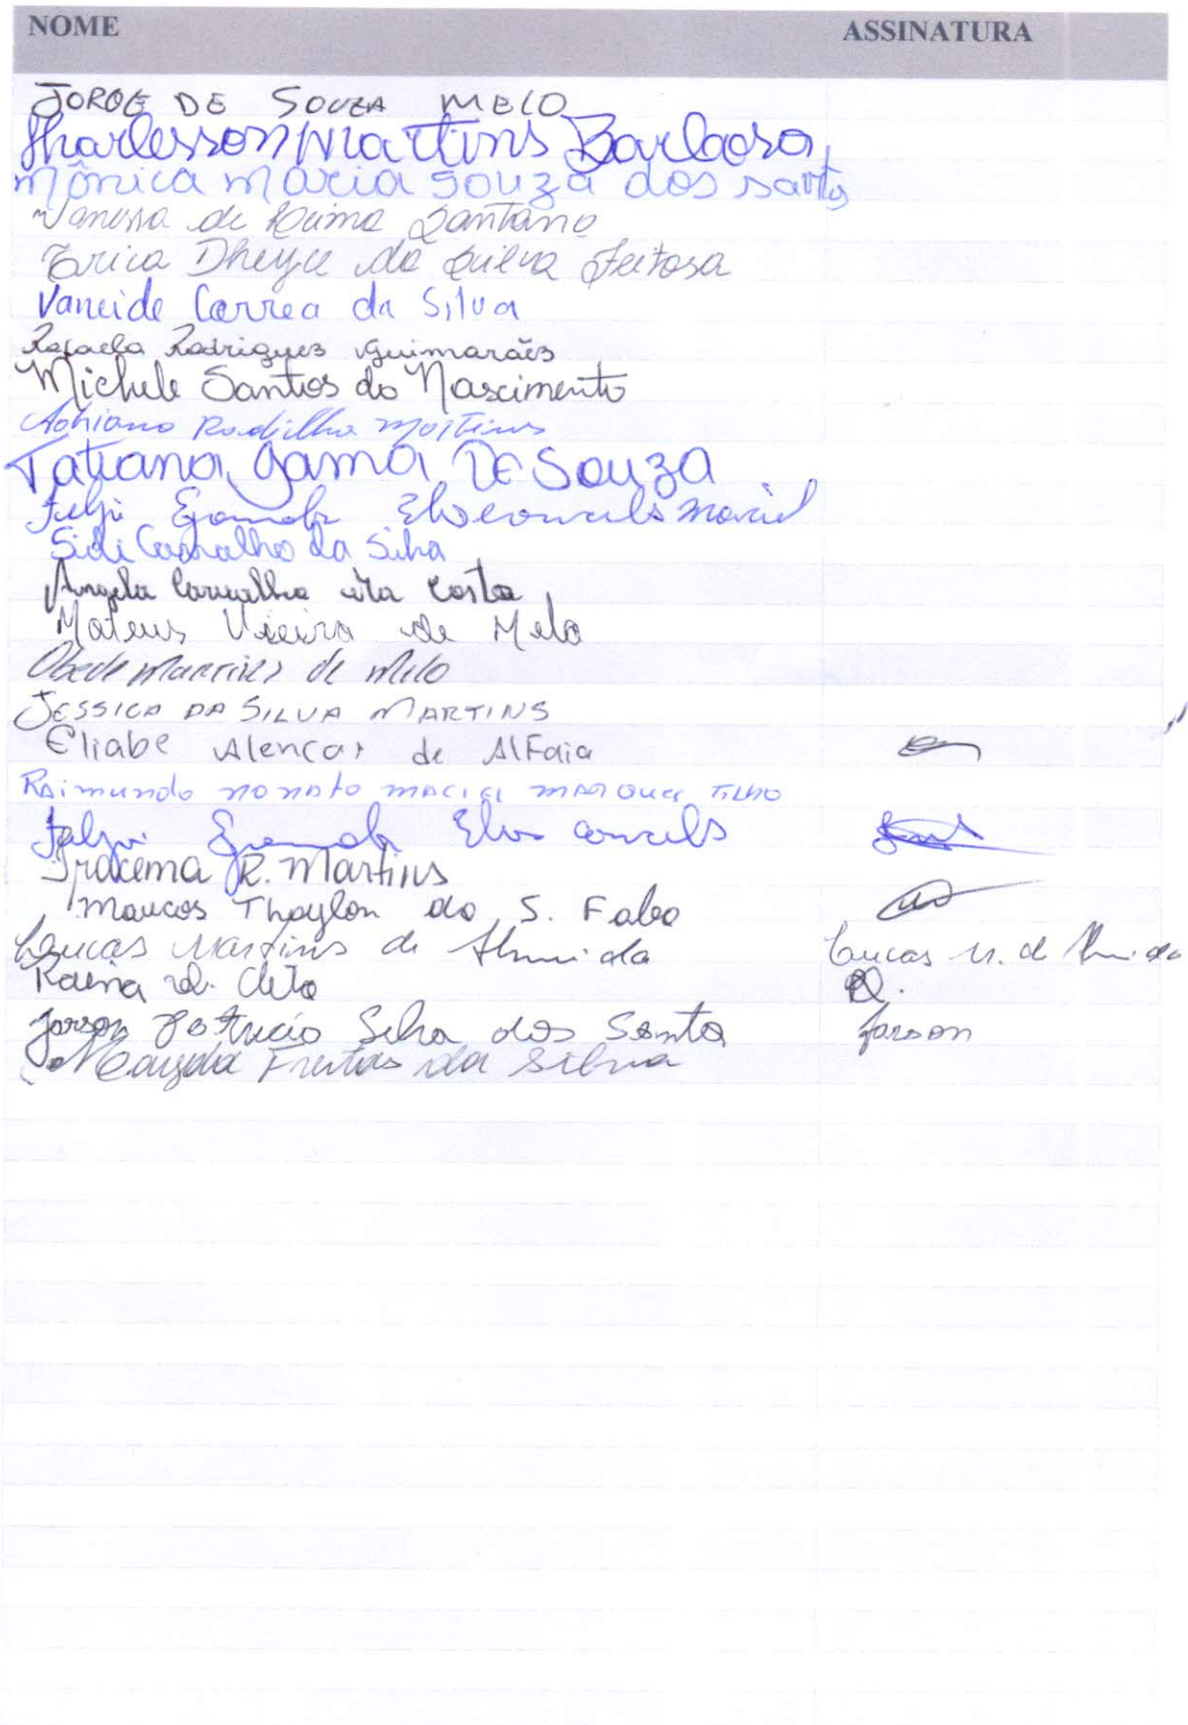 NOME ASSINATURA
JORGE DE SOUZA MELO
Tharlesson Martins Barbosa
Mônica Maria Souza dos Santos
Vanessa de Lima Santana
Erica Dheyce da Silva Feitosa
Vaneide Correa da Silva
Rafaela Rodrigues Guimarães
Michele Santos do Nascimento
Adriano Rodilha Martins
Tatiana Gama De Souza
Maciel
Sidi Carvalho da Silva
Angela Carvalho da Costa
Mateus Vieira de Melo
Obede Martins de Melo
JESSICA DA SILVA MARTINS
Eliabe Alencar de Alfaia
Raimundo nonato maciel marques Filho
Iracema R. Martins
Marcos Thaylon da S. Fabo
Lucas Martins de Almeida Lucas M. de Almeida
R.
Silva dos Santo Jarson
Freitas da Silva